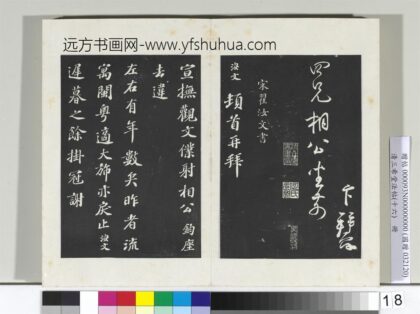 远方书画网-www.yfshuhua.com
四兄相公坐前
宋翟汝文書
汝文 頓首再拜
宣撫觀文僕射相公 鈞座
去違
左右有年數矣昨者流
寓閩粵適大旆亦戾止汝文
遲暮之餘掛冠謝
清三希堂法帖(十六) 冊
18